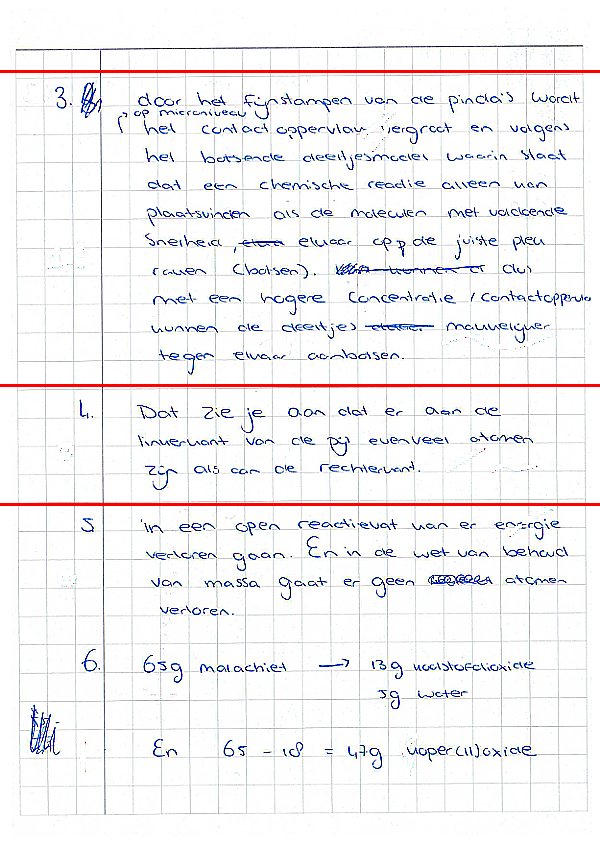 3. door het fijnstampen van de pinda's wordt
op microniveau
het contactoppervlak vergroot en volgens
het botsende deeltjesmodel waarin staat
dat een chemische reactie alleen kan
plaatsvinden als de moleculen met voldoende
snelheid, elkaar op p de juiste plek
raken (botsen). dus
met een hogere concentratie / contactoppervla
kunnen de deeltjes makkelijker
tegen elkaar aanbotsen.
4. Dat zie je aan dat er aan de
linkerkant van de pijl evenveel atomen
zijn als aan de rechterkant.
5 in een open reactievat kan er energie
verloren gaan. En in de wet van behoud
van massa gaat er geen atomen
verloren.
6. 65g malachiet → 13g koolstofdioxide
5g water
En 65 - 18 = 47g koper(II)oxide